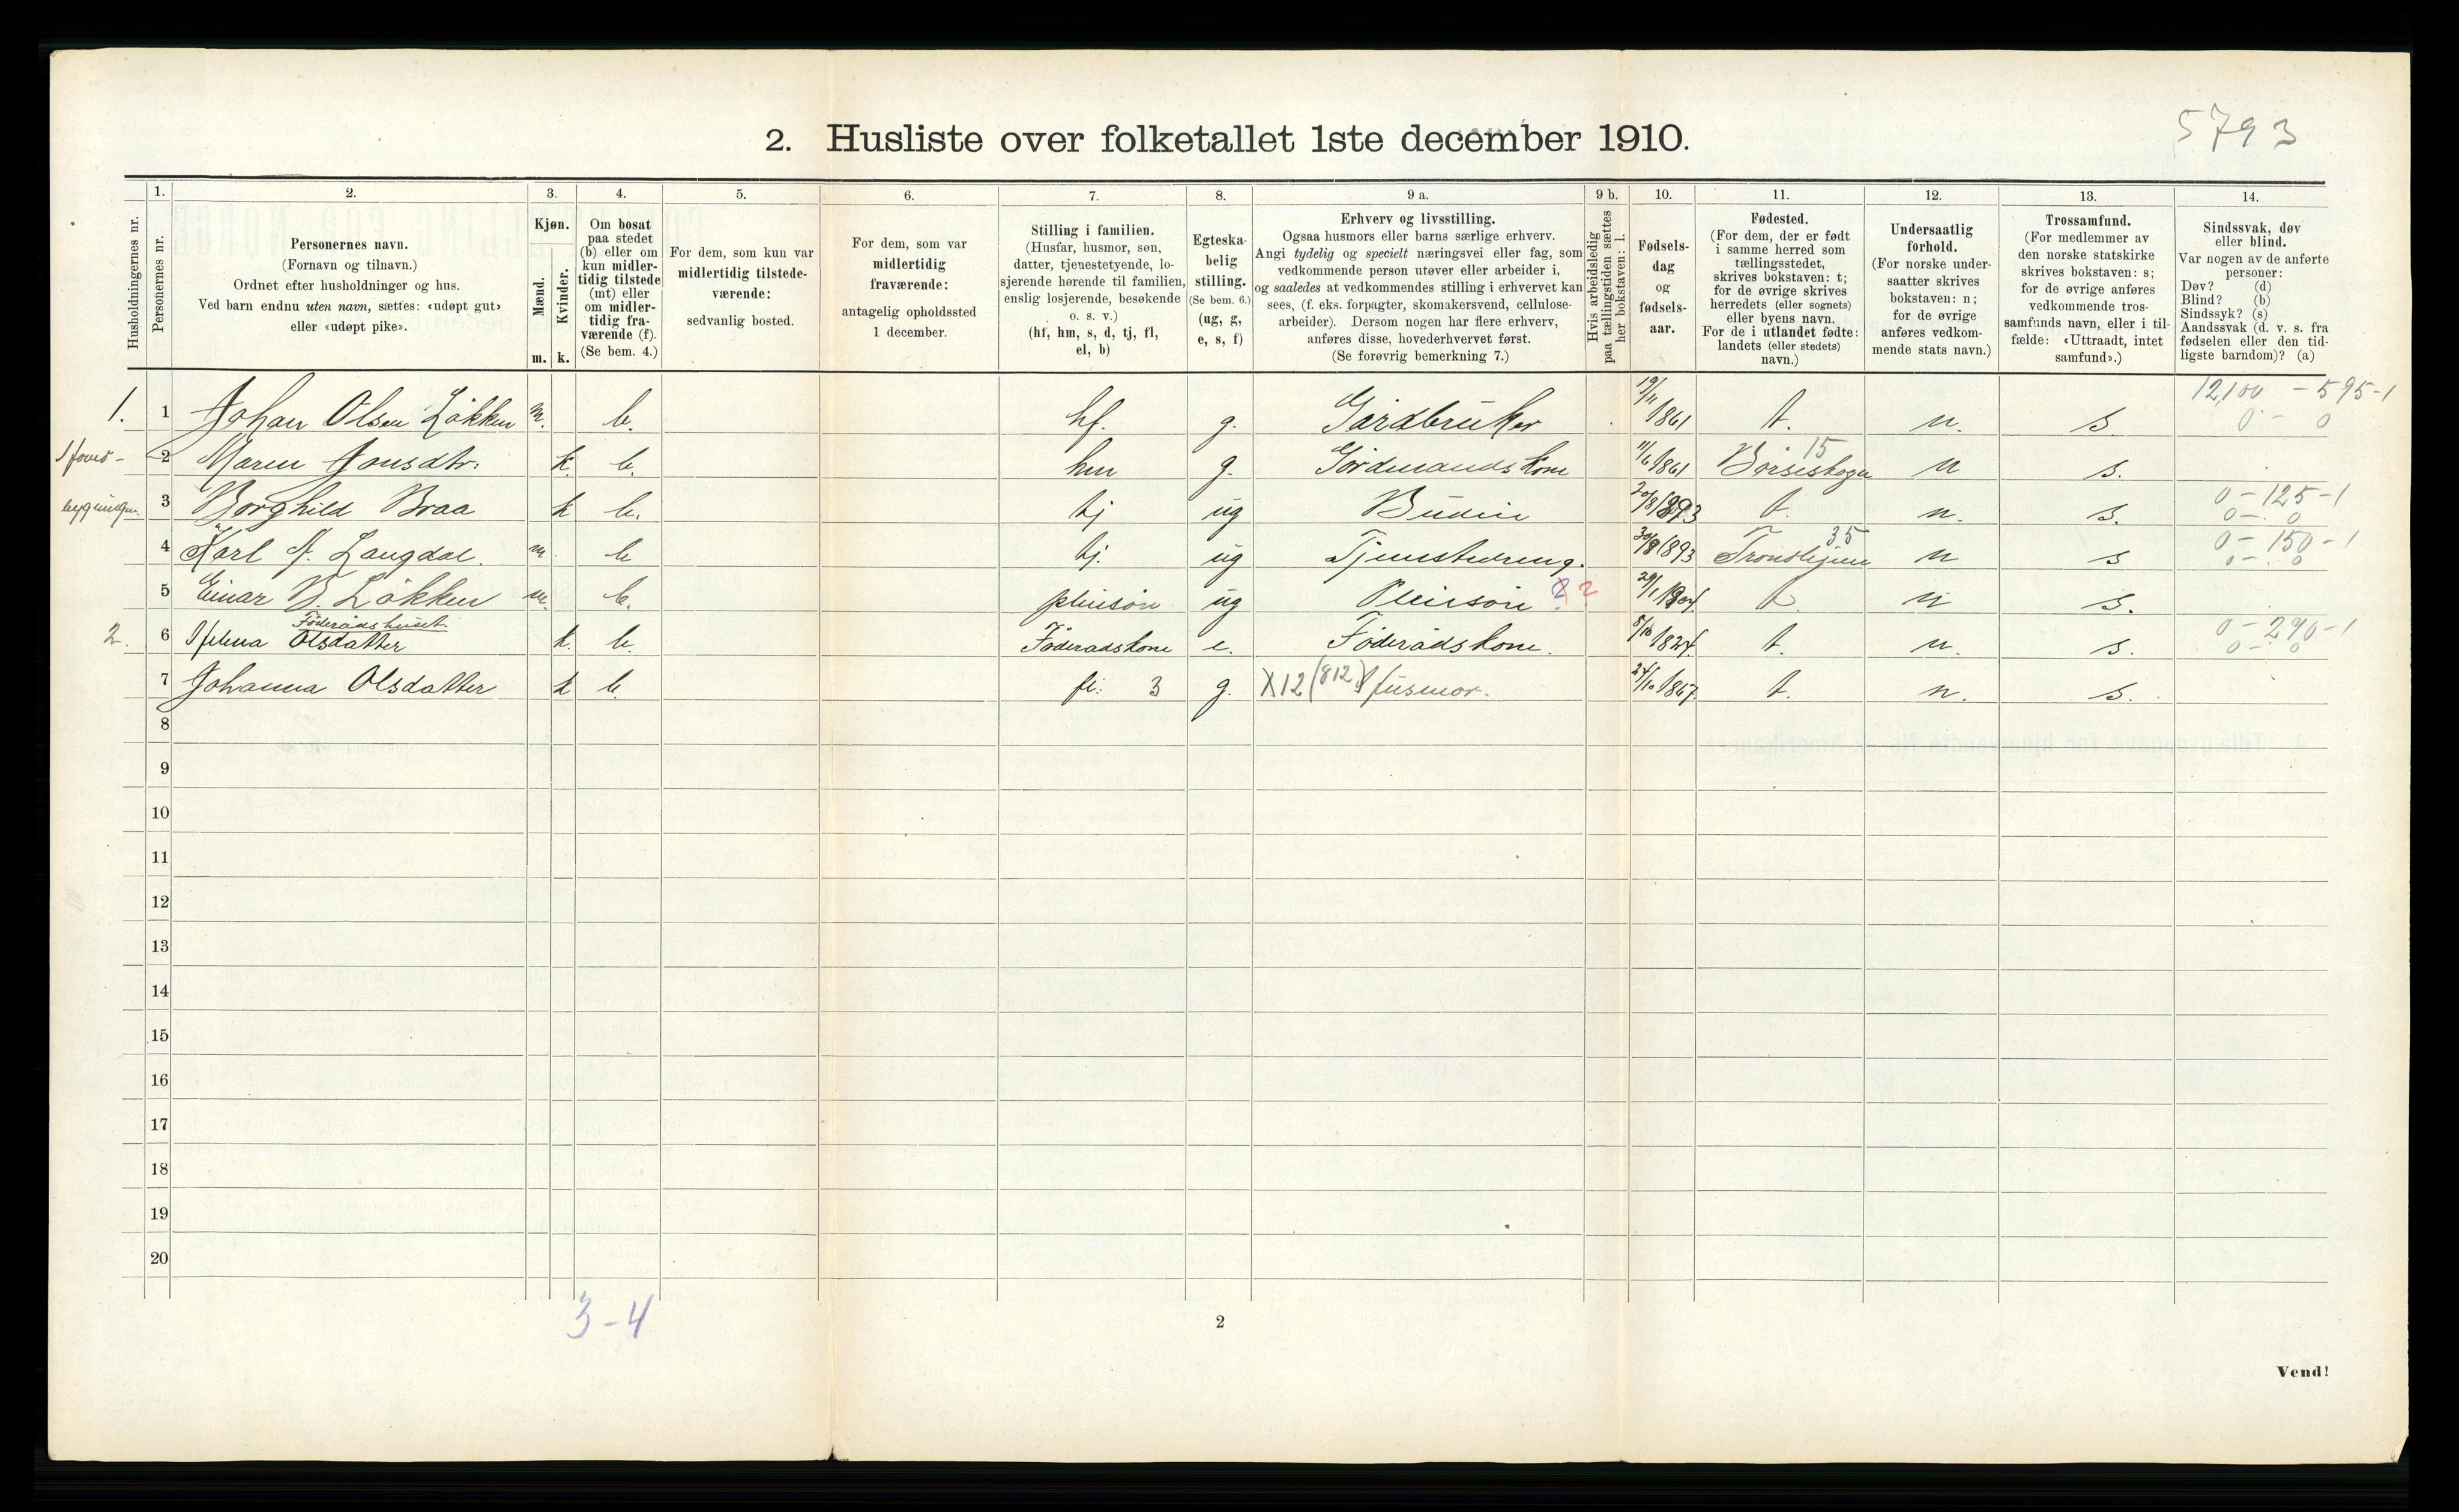 5793
2. Husliste over folketallet 1ste december 1910.
Husholdningernes nr.
1.
Personernes nr.
2.
Personernes navn.
(Fornavn og tilnavn.)
Ordnet efter husholdninger og hus.
Ved barn endnu uten navn, sættes: «udøpt gut»
eller «udøpt pike».
3.
Kjøn.
Mænd.
Kvinder.
m. k.
4.
Om bosat
paa stedet
(b) eller om
kun midler-
tidig tilstede
(mt) eller
om midler-
tidig fra-
værende (f).
(Se bem. 4.)
5.
For dem, som kun var
midlertidig tilstede-
værende:
sedvanlig bosted.
6.
For dem, som var
midlertidig
fraværende:
antagelig opholdssted
1 december.
7.
Stilling i familien.
(Husfar, husmor, søn,
datter, tjenestetyende, lo-
sjerende hørende til familien,
enslig losjerende, besøkende
o. s. v.)
(hf, hm, s, d, tj, fl,
el, b)
8.
Egteska-
belig
stilling.
(Se bem. 6.)
(ug, g,
e, s, f)
9 a.
Erhverv og livsstilling.
Ogsaa husmors eller barns særlige erhverv.
Angi tydelig og specielt næringsvei eller fag, som
vedkommende person utøver eller arbeider i,
og saaledes at vedkommendes stilling i erhvervet kan
sees, (f. eks. forpagter, skomakersvend, cellulose-
arbeider). Dersom nogen har flere erhverv,
anføres disse, hovederhvervet først.
(Se forøvrig bemerkning 7.)
9 b.
Hvis arbeidsledig
paa tællingstiden sættes
her bokstaven: l.
10.
Fødsels-
dag
og
fødsels-
aar.
11.
Fødested.
(For dem, der er født
i samme herred som
tællingsstedet,
skrives bokstaven: t;
for de øvrige skrives
herredets (eller sognets)
eller byens navn.
For de i utlandet fødte:
landets (eller stedets)
navn.)
12.
Undersaatlig
forhold.
(For norske under-
saatter skrives
bokstaven: n;
for de øvrige
anføres vedkom-
mende stats navn.)
13.
Trossamfund.
(For medlemmer av
den norske statskirke
skrives bokstaven: s;
for de øvrige anføres
vedkommende tros-
samfunds navn, eller i til-
fælde: «Uttraadt, intet
samfund».)
14.
Sindssvak, døv
eller blind.
Var nogen av de anførte
personer:
Døv? (d)
Blind? (b)
Sindssyk? (s)
Aandssvak (d. v. s. fra
fødselen eller den tid-
ligste barndom)? (a)
12,100 - 595-1
1. 1 Johan Olsen Løkken m. b. hf. g. Gårdbruker 19/11 1861 t. n. s. 0 - 0
15
2 Maren Jonsdtr. k. b. hm g. Gårdmandskone 11/6 1861 Børseskogn n s.
0 - 125 - 1
3 Borghild Braa k b. tj ug Budeie 20/8 1893 t. n. s. 0 - 0
35 0 - 150 - 1
4 Karl A. Langdal. m b tj. ug Tjenestedreng. 30/8 1893 Trondhjem n s 0 - 0
5 Einar B. Løkken m. b. pleiesøn ug Pleiesøn 2 ? 29/1 1904. t. n s.
Føderådshuset. 0 - 290 - 1
2. 6 Olsdatter k. b. Føderadskone e. Føderådskone. 5/10 1824. t. n. s. 0 - 0
7 Johanna Olsdatter k b. fl. 3 g. X12 (812) Husmor. 24/10 1867. t. n. s.
8
9
10
11
12
13
14
15
16
17
18
19
20
3-4
2
Vend!